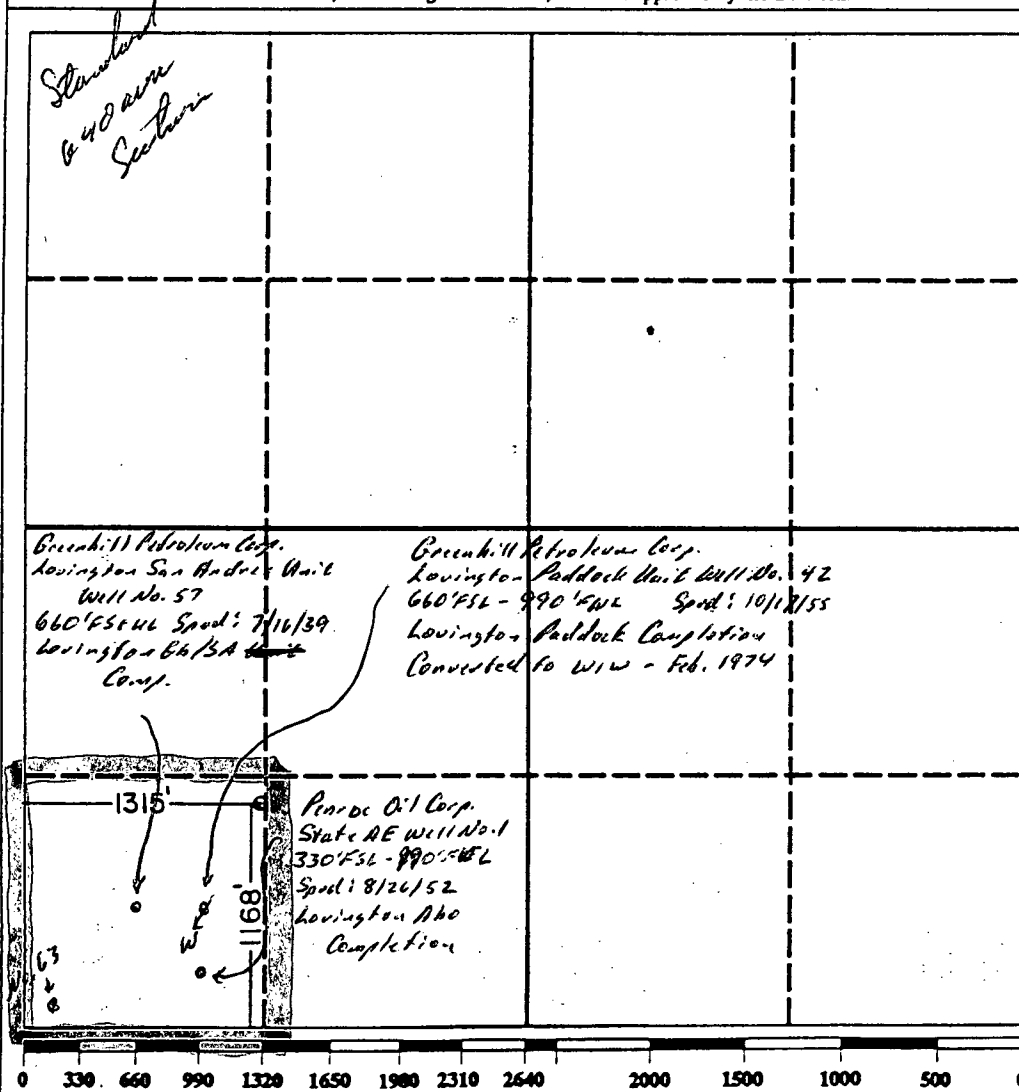 Standard
640 acre
Section
Greenhill Petroleum Corp.
Lovington San Andres Unit
Well No. 57
660'FS&WL Spud: 7/16/39
Lovington Gb/SA Unit
Comp.
Greenhill Petroleum Corp.
Lovington Paddock Unit Well No. 42
660'FSL - 990'FWL Spud: 10/17/55
Lovington Paddock Completion
Converted to WIW - Feb. 1974
1315'
1168'
Penroc Oil Corp.
State AE Well No. 1
330'FSL - 990'FWL
Spud: 8/26/52
Lovington Abo
Completion
63
0 330 660 990 1320 1650 1980 2310 2640 2000 1500 1000 500